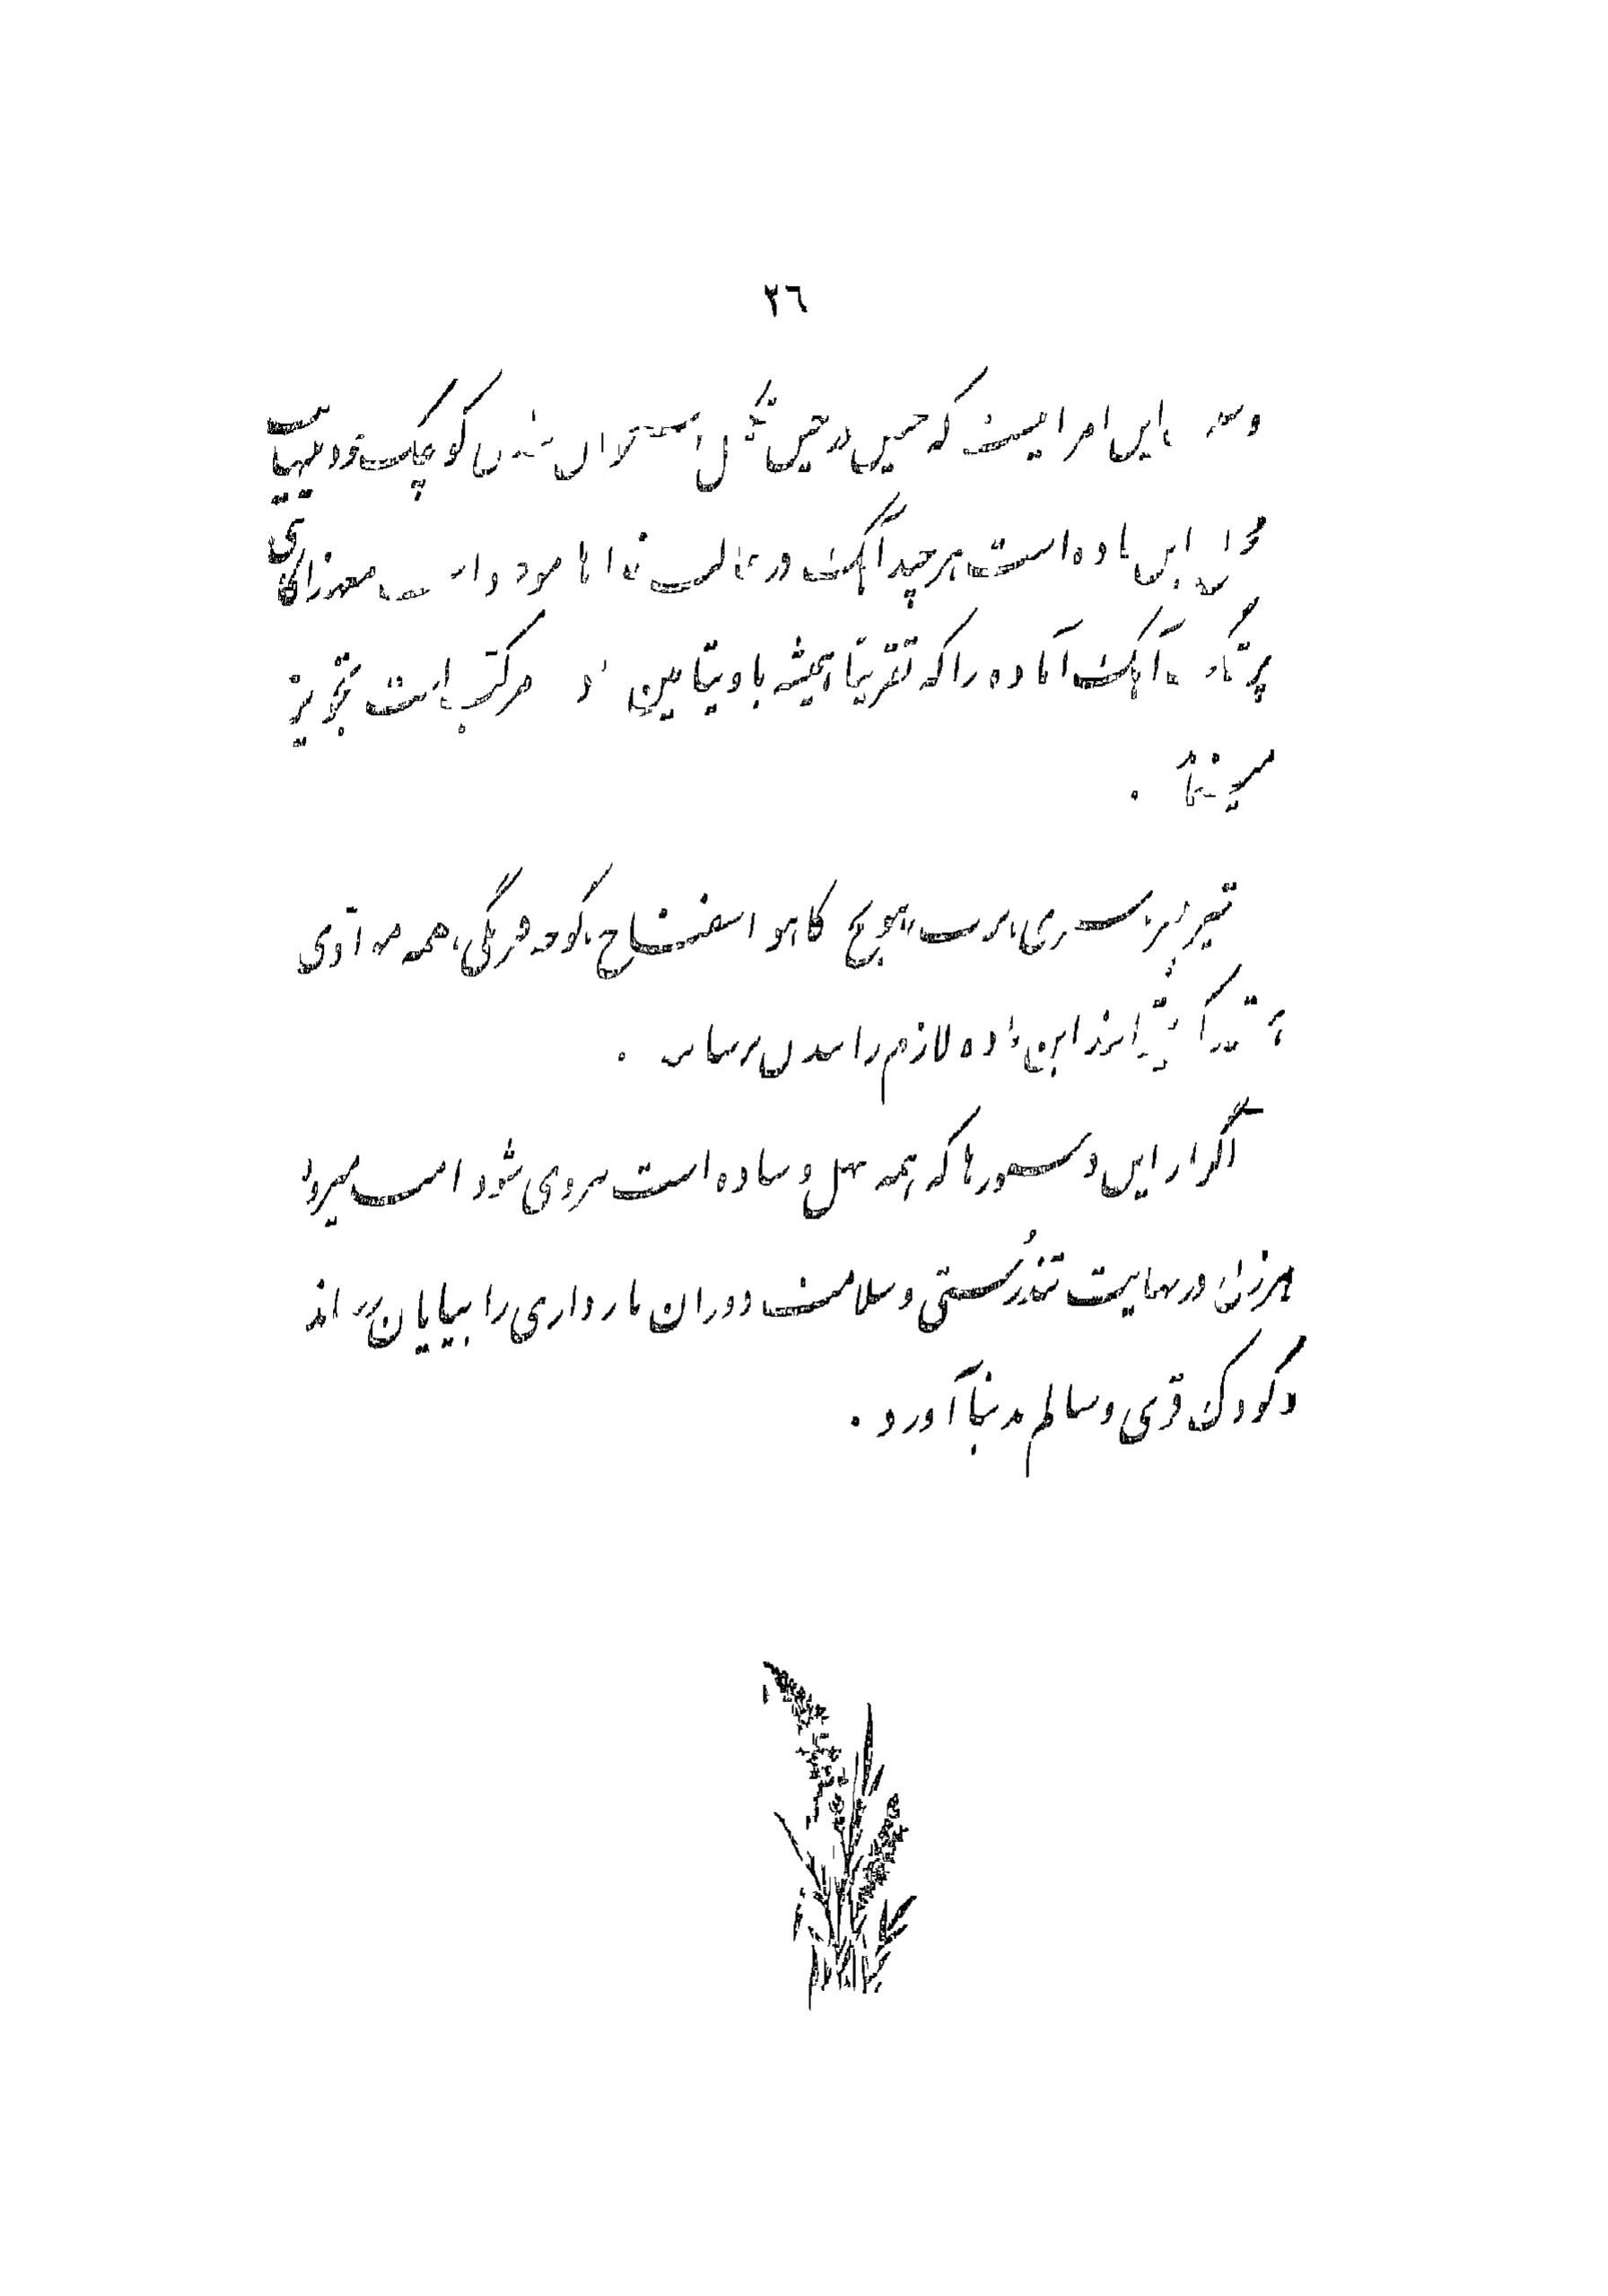 ٢٦
این امر اینست که جنین در حین تشکل استخوان بندی کوچک خود بینهایت
محتاج این ماده است هر چند آهک در غالب غذاها موجود است معهذا گاهی
پزشک آهک آماده را که تقریباً همیشه با ویتامین د مرکب است تجویز
مینماید .
شیر پنیر سبزی، هویج کاهو اسفناج، گوجه فرنگی، همه موادی
هستند که میتوانند این ماده لازم را ببدن برسانند .
اگر از این دستورها که همه سهل و ساده است پیروی شود امید میرود
هر زن در نهایت تندرستی و سلامت دوران بارداری را بپایان رساند
و کودک قوی و سالم بدنیا آورد .